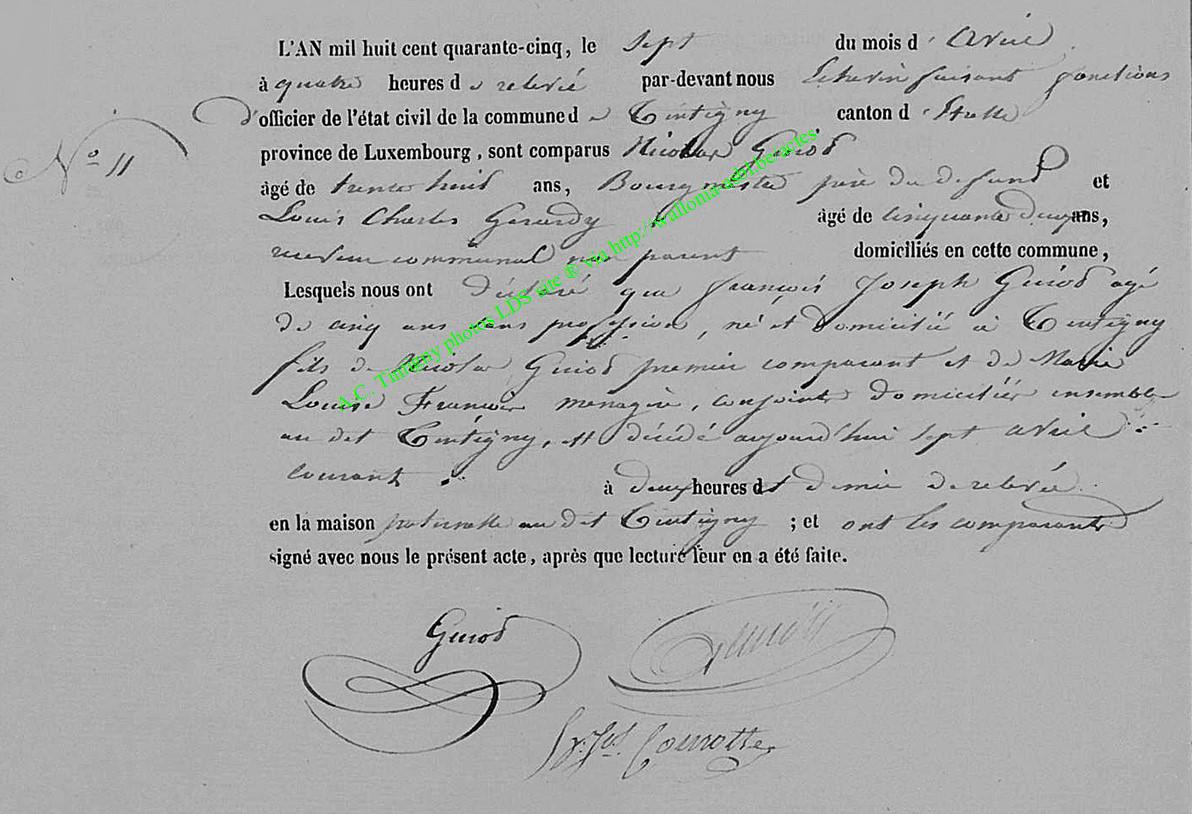 L'AN mil huit cent quarante-cinq, le sept du mois d'Avril
à quatre heures de relevée par-devant nous Echevin faisant fonctions
d'officier de l'état civil de la commune de Tintigny canton d'Etalle
N° 11
province de Luxembourg, sont comparus Nicolas Guiod
âgé de trente huit ans, Bourgmestre père du defunt et
Louis Charles Gerardy âgé de cinquante deux ans,
receveur communal non parent domiciliés en cette commune,
Lesquels nous ont déclaré que françois Joseph Guiod agé
de cinq ans sans profession, né et domicilié à Tintigny
fils de Nicolas Guiod premier comparant et de Marie
Louise François menagère, conjoints domiciliés ensemble
au dit Tintigny, est décédé aujourd'hui sept avril
courant à deux heures et demie de relevée
en la maison paternelle au dit Tintigny ; et ont les comparants
signé avec nous le présent acte, après que lecture leur en a été faite.
A.C. Tintigny photos LDS site ® via http://wallonia-asbl.beracles.
Guiod